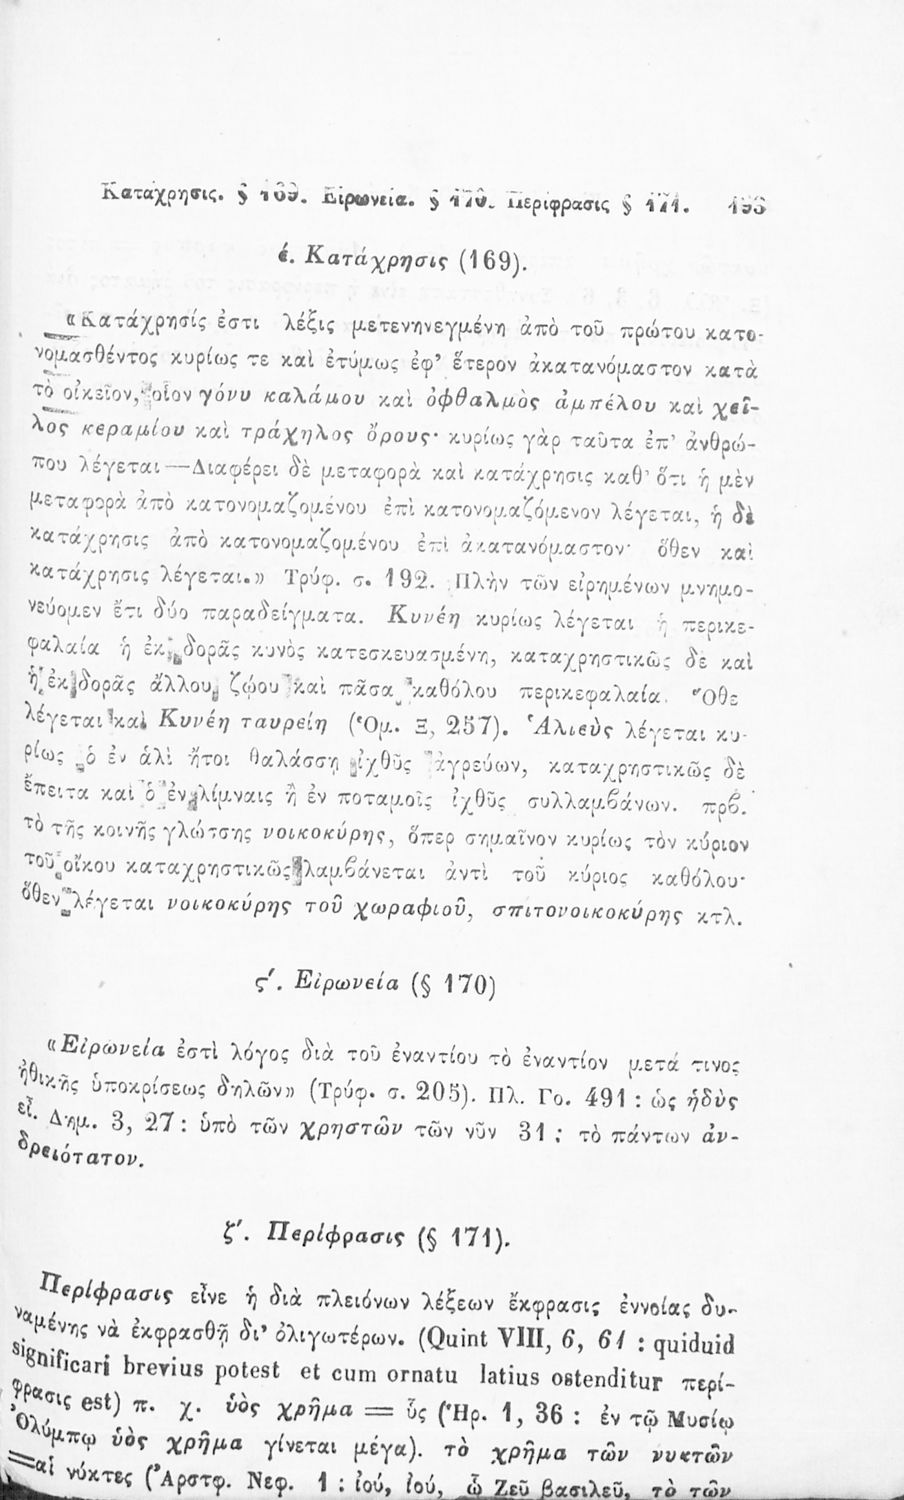 Κατάχρησις. § 169. Εἰρωνεία. § 170. Περίφρασις § 171. 193
έ. Κατάχρησις (169).
«Κατάχρησίς ἐστι λέξις μετενηνεγμένη ἀπὸ τοῦ πρώτου κατο-
νομασθέντος κυρίως τε καὶ ἐτύμως ἐφ’ ἕτερον ἀκατανόμαστον κατὰ
τὸ οἰκεῖον, οἷον γόνυ καλάμου καὶ ὀφθαλμὸς ἀμπέλου καὶ χεῖ-
λος κεραμίου καὶ τράχηλος ὄρους· κυρίως γὰρ ταῦτα ἐπ’ ἀνθρώ-
που λέγεται—Διαφέρει δὲ μεταφορὰ καὶ κατάχρησις καθ’ ὅτι ἡ μὲν
μεταφορὰ ἀπὸ κατονομαζομένου ἐπὶ κατονομαζόμενον λέγεται, ἡ δὲ
κατάχρησις ἀπὸ κατονομαζομένου ἐπὶ ἀκατανόμαστον· ὅθεν καὶ
κατάχρησις λέγεται.» Τρύφ. σ. 192. Πλὴν τῶν εἰρημένων μνημο-
νεύομεν ἔτι δύο παραδείγματα. Κυνέη κυρίως λέγεται ἡ περικε-
φαλαία ἡ ἐκ δορᾶς κυνὸς κατεσκευασμένη, καταχρηστικῶς δὲ καὶ
ἡ ἐκ δορᾶς ἄλλου ζῴου καὶ πᾶσα καθόλου περικεφαλαία. Ὅθε
λέγεται καὶ Κυνέη ταυρείη (Ὁμ. Ξ, 257). Ἁλιεὺς λέγεται κυ-
ρίως ὁ ἐν ἁλὶ ἤτοι θαλάσσῃ ἰχθῦς ἀγρεύων, καταχρηστικῶς δὲ
ἔπειτα καὶ ὁ ἐν λίμναις ἢ ἐν ποταμοῖς ἰχθῦς συλλαμβάνων. πρβ.
τὸ τῆς κοινῆς γλώτσης νοικοκύρης, ὅπερ σημαῖνον κυρίως τὸν κύριον
τοῦ οἴκου καταχρηστικῶς λαμβάνεται ἀντὶ τοῦ κύριος καθόλου·
ὅθεν λέγεται νοικοκύρης τοῦ χωραφιοῦ, σπιτονοικοκύρης κτλ.
ϛ′. Εἰρωνεία (§ 170)
«Εἰρωνεία ἐστὶ λόγος διὰ τοῦ ἐναντίου τὸ ἐναντίον μετά τινος
ἠθικῆς ὑποκρίσεως δηλῶν» (Τρύφ. σ. 205). Πλ. Γο. 491 : ὡς ἡδὺς
εἶ. Δημ. 3, 27 : ὑπὸ τῶν χρηστῶν τῶν νῦν 31 : τὸ πάντων ἀν-
δρειότατον.
ζ′. Περίφρασις (§ 171).
Περίφρασις εἶνε ἡ διὰ πλειόνων λέξεων ἔκφρασις ἐννοίας δυ-
ναμένης νὰ ἐκφρασθῇ δι’ ὀλιγωτέρων. (Quint VIII, 6, 61 : quiduid
significari brevius potest et cum ornatu latius ostenditur περί-
φρασις est) π. χ. ὑὸς χρῆμα = ὗς (Ἡρ. 1, 36 : ἐν τῷ Μυσίῳ
Ὀλύμπῳ ὑὸς χρῆμα γίνεται μέγα). τὸ χρῆμα τῶν νυκτῶν
=αἱ νύκτες (Ἀρστφ. Νεφ. 1 : ἰού, ἰού, ὦ Ζεῦ βασιλεῦ, τὸ τῶν